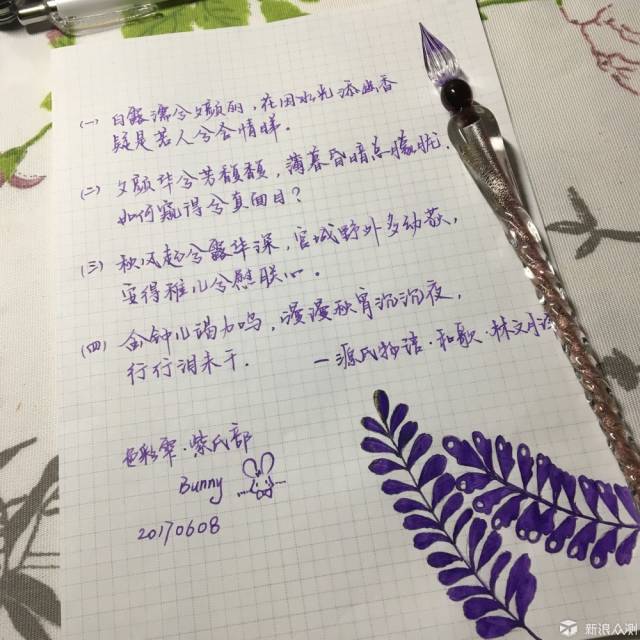 (一) 白露濡兮夕颜丽，花因水光添幽香
疑是若人兮含情睇．
(二) 夕颜华兮芳馥馥，薄暮昏暗总朦胧，
如何窥得兮真面目？
(三) 秋风起兮露华深，宫城野外多幼荻，
安得稚儿兮慰朕心．
(四) 金钟儿竭力鸣，漫漫秋宵沉沉夜，
行行泪未干．
—源氏物语·和歌·林文月译
色彩雫·紫式部
Bunny
20170608
新浪众测